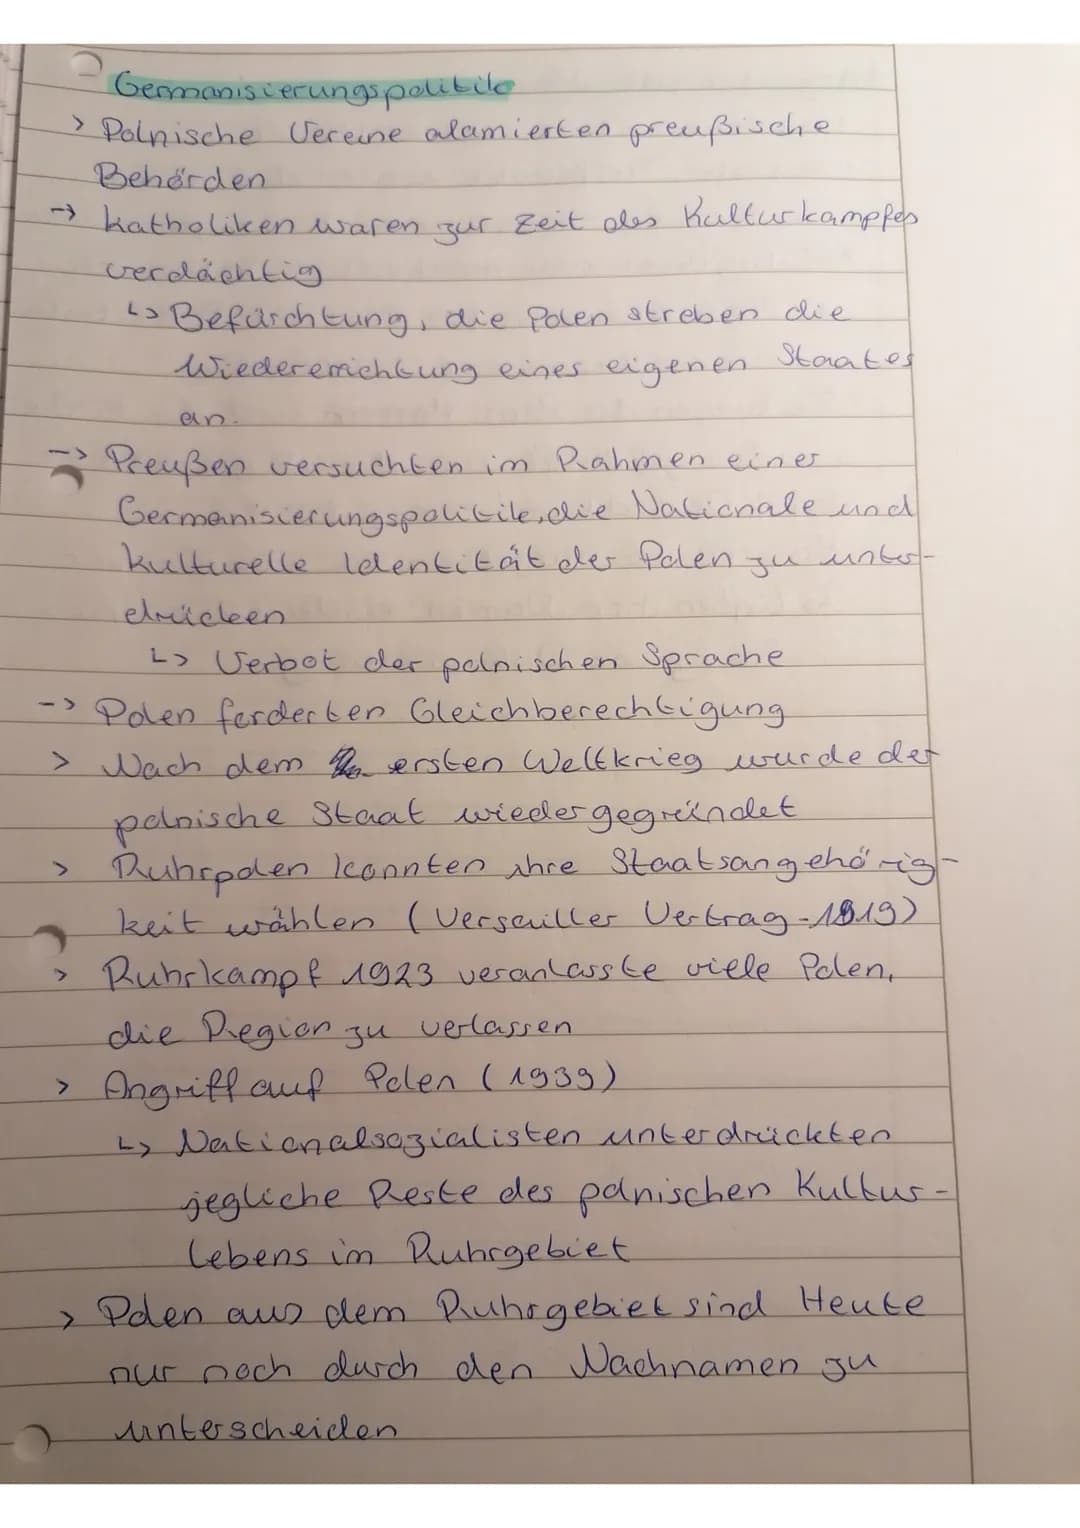 Germanisierungspolitik
> Polnische Vereine alamierten preußische
Behörden
-> Katholiken waren zur Zeit des Kulturkampfes
verdächtig
↳ Befürchtung, die Polen streben die
Wiedererrichtung eines eigenen Staates
an.
-> Preußen versuchten im Rahmen einer
Germanisierungspolitik, die Nationale und
kulturelle Identität der Polen zu unter-
drücken
↳ Verbot der polnischen Sprache
-> Polen forderten Gleichberechtigung
> Nach dem ersten Weltkrieg wurde der
polnische Staat wieder gegründet
> Ruhrpolen konnten ihre Staatsangehörig-
keit wählen (Versailler Vertrag - 1919)
> Ruhrkampf 1923 veranlasste viele Polen,
die Region zu verlassen
> Angriff auf Polen (1939)
↳ Nationalsozialisten unterdrückten
jegliche Reste des polnischen Kultur-
lebens im Ruhrgebiet
> Polen aus dem Ruhrgebiet sind Heute
nur noch durch den Nachnamen zu
unterscheiden